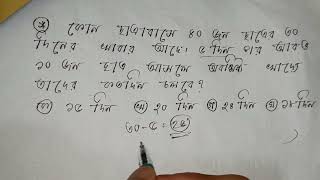 কোন ছাত্রাবাসে ৪০ জন ছাত্রের ৩০
দিনের খাবার আছে। ৫ দিন পর আরও
১০ জন ছাত্র আসলে অবশিষ্ট খাদ্যে
তাদের কতদিন চলবে?
(ক) ১৫ দিন (খ) ২০ দিন (গ) ২৪ দিন (ঘ) ১৮ দিন
৩০-৫=২৫